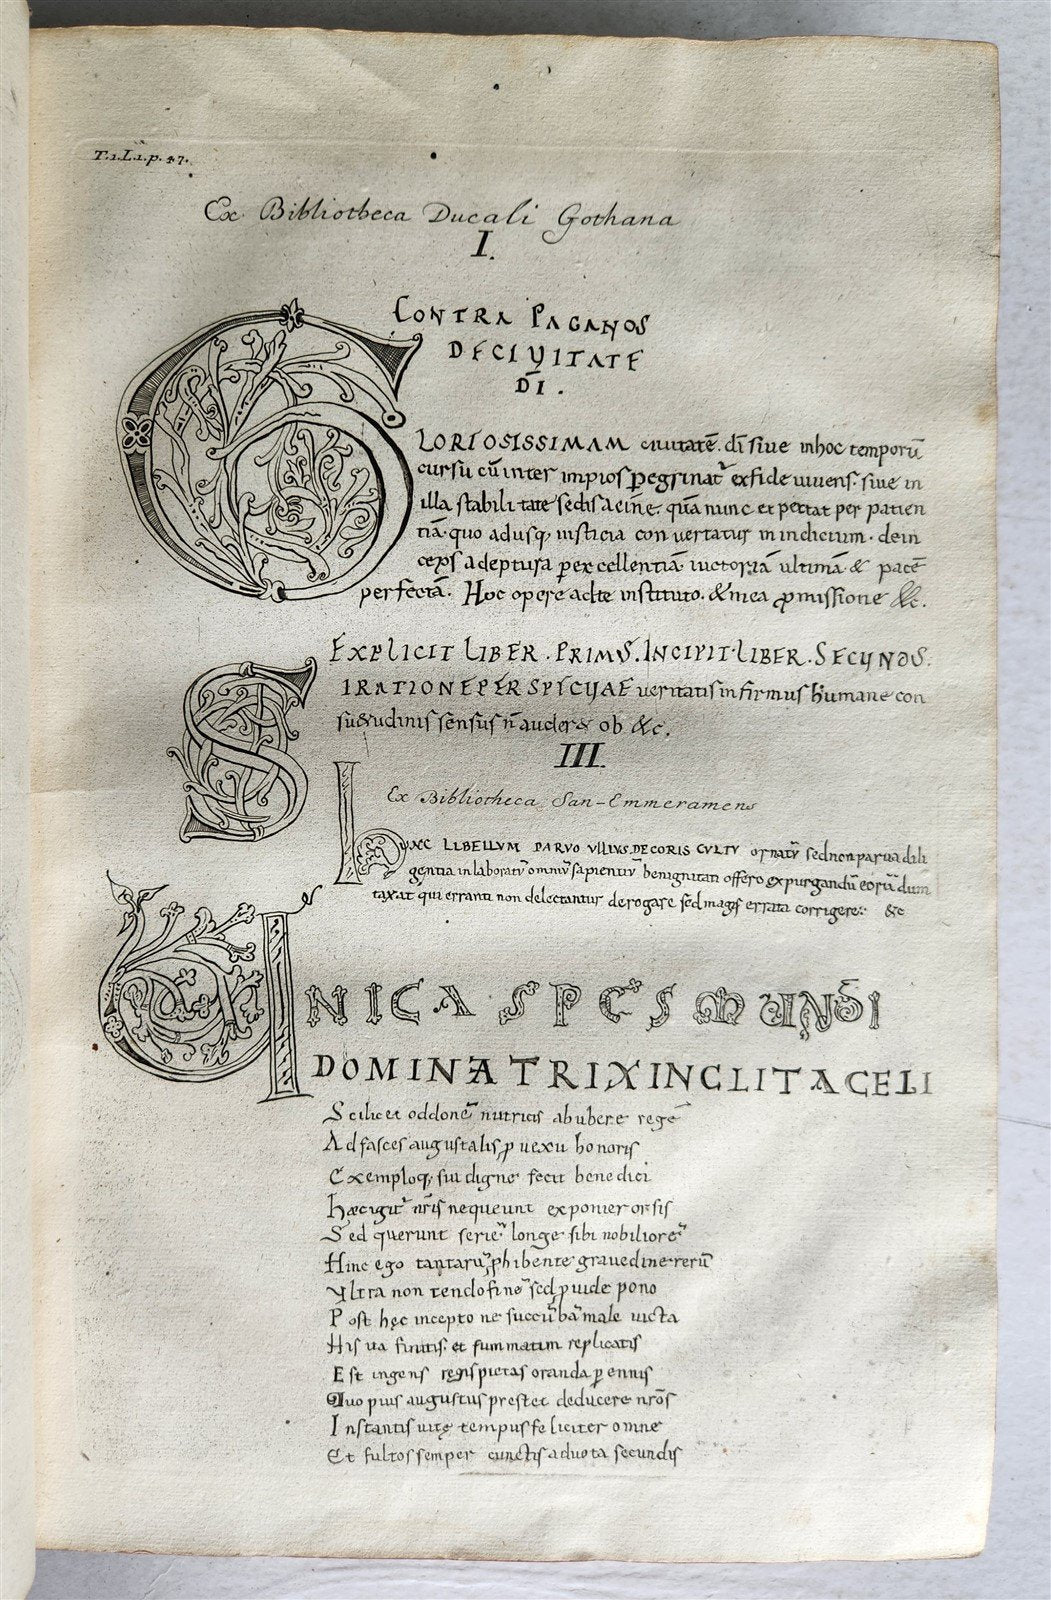 T.1.L.1.p.47.
Ex Bibliotheca Ducali Gothana
I.
CONTRA PAGANOS
DECIVITATE
DĪ.
GLORIOSISSIMAM civitatē. dī sive inhoc temporū
cursu cū inter impios pegrinat exfide vivens. sive in
illa stabili tate sedis aeīne quā nunc expectat per patien
tiā. quo adusq, iusticia con vertatur in iudicium. dein
ceps adeptura per excellentiā victoriā ultimā & pacē
perfectā. Hoc opere adte instituto. & mea promissione &c.
EXPLICIT LIBER. PRIMS. INCIPIT. LIBER. SECUNDS.
SI RATIONE PERSPICUAE veritatis infirmus humane con
su&udinis sensus n̄ auder& ob &c.
III.
Ex Bibliotheca San-Emmeramens
HUNC LIBELLVM PARVO VLLIVS DECORIS CVLTV ornatū sed non parva dili
gentia in laboratū omniū sapientiū benignitati offero expurgandū eorū dum
taxat qui erranti non delectantur derogare sed magis errata corrigere &c
UNICA SPES MUNDI
DOMINATRIX INCLITA CELI
Scilicet oddonē nutricis abubere regē
Adfasces augustalis pvexu honoris
Exemploq; sui digne fecit benedici
Hæc igit nr̄is nequeunt exponier orsis
Sed querunt seriē longe sibi nobiliorē
Hinc ego tantarū phibente gravedine rerū
Vltra non tendo finē sed pvide pono
Post hęc incepto ne succūbā male victa
His ita finitis et summatim replicatis
Est ingens regis pietas oranda pennis
Quo pius augustus prestet deducere nrōs
Instantis vitę tempus feliciter omne
Et fultos semper cunctis advota secundis